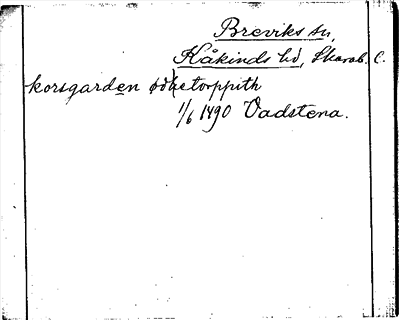 Breviks sn,
Kåkinds hd, Skarab. C.
korsgarden
1/6 1490 Vadstena.